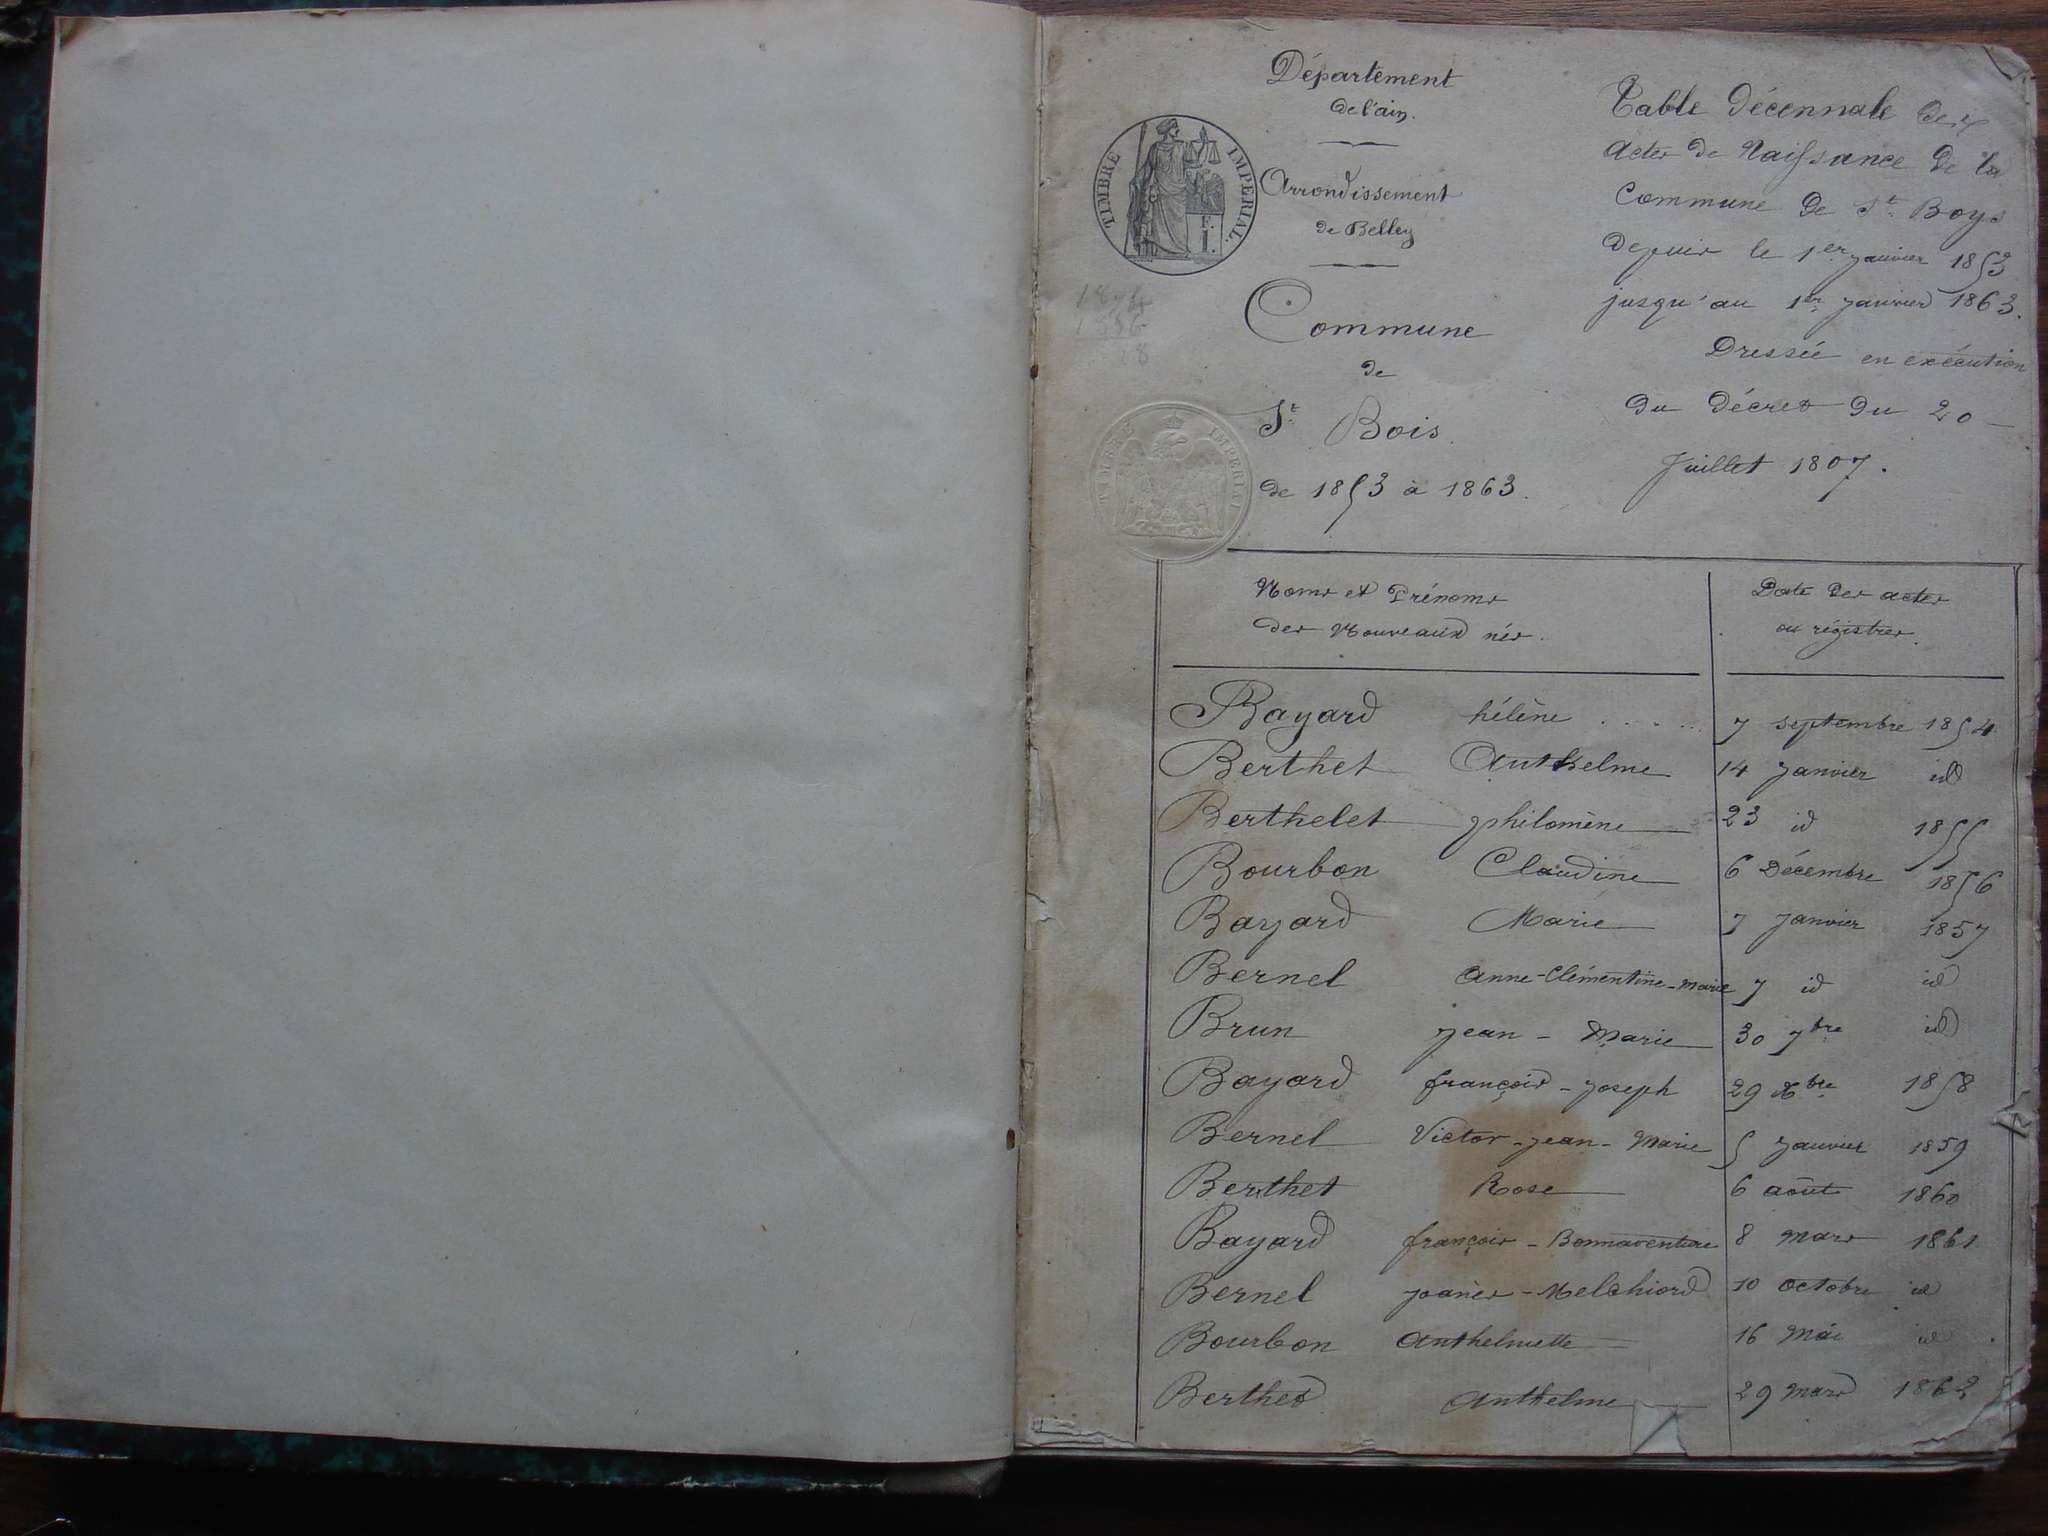 Département
de l'ain.
Arrondissement
de Belley
Commune
de
St. Bois.
de 1853 à 1863.
TIMBRE IMPERIAL.
F. I.
TIMBRE IMPERIAL
28
Table décennale des
actes de Naissance de la
Commune de St. Boys
depuis le 1er janvier 1853
jusqu'au 1er janvier 1863.
Dressée en exécution
du décret du 20
juillet 1807.
Noms et Prénoms
des Nouveaux nés.
Date des actes
ou régistres.
Bayard hélène . . . . . 7 septembre 1854
Berthet Anthelme 14 janvier id
Berthelet philomène 23 id 1855
Bourbon Claudine 6 Décembre 1856
Bayard Marie 7 janvier 1857
Bernel anne-Clémentine-marie 7 id id
Brun jean - Marie 30 7bre id
Bayard françois - joseph 29 Xbre 1858
Bernel Victor - jean - Marie 5 janvier 1859
Berthet Rose 6 août 1860
Bayard françois - Bonnaventure 8 mars 1861
Bernel joanès - Melchiord 10 octobre id
Bourbon anthelmette 16 Mai id
Berthet anthelme 29 mars 1862